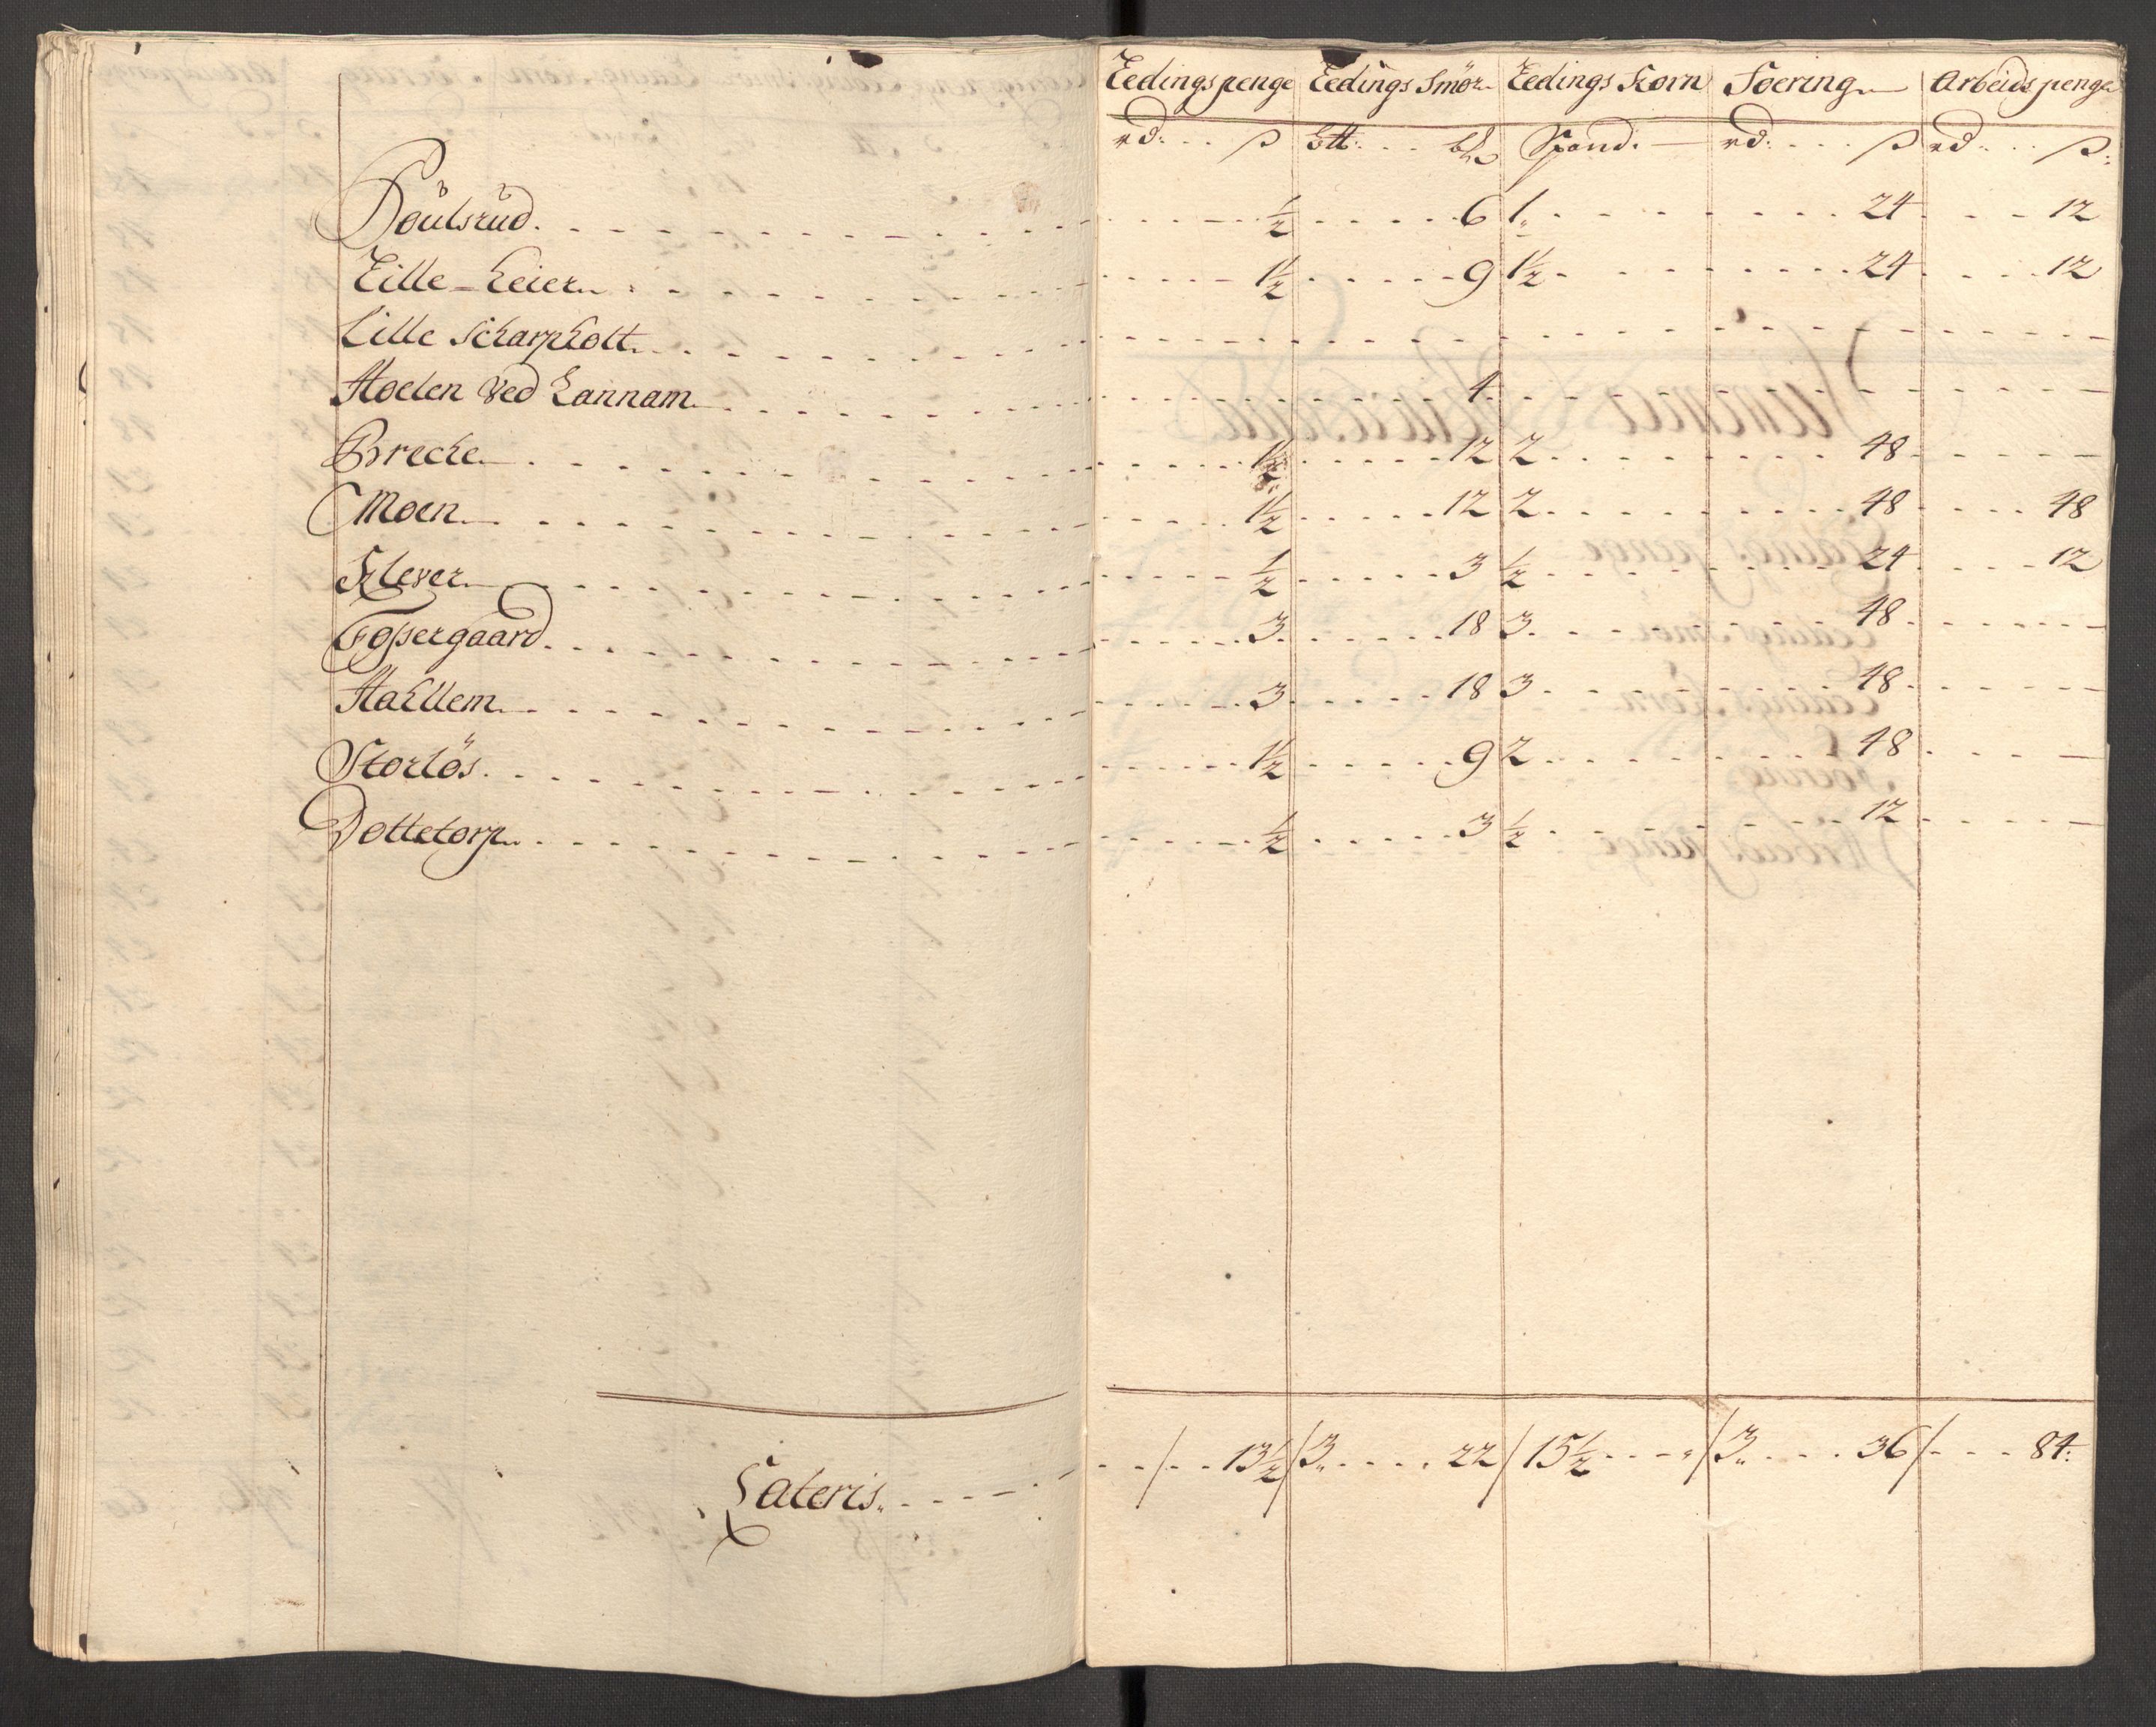 Leedingspenge Leedings Smör Leedings Korn Foering Arbeids penge
rd: . . ß Btt: . . bl Spand. rd: . . . ß rd . . ß:
Poulsrud. ½ 6 1 24 12
Lille Leier 1½ 9 1½ 24 12
Lille Scharpholt
Moelen Ved Lannam 4
Breche 1½ 12 2 48
Moen 1½ 12 2 48 48
Klever ½ 3 ½ 24 12
Fossergaard 3 18 3 48
Hakllem 3 18 3 48
Storlös 1½ 9 2 48
Dottetorp ½ 3 ½ 12
Lateris 13½ 3 22 15½ 3 36 84